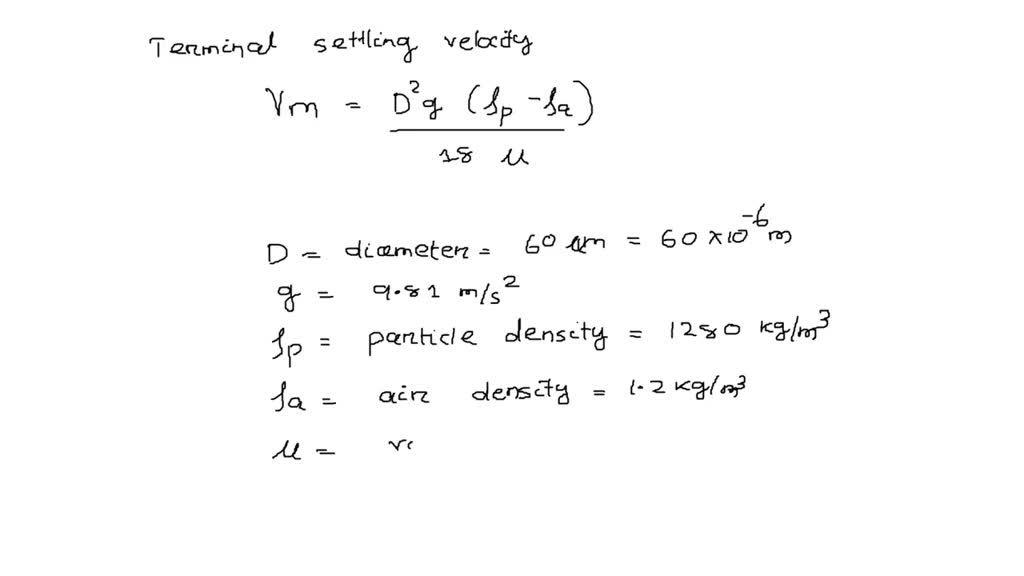 Terminal settling velocity
Vm = D²g (ρp - ρa)
18 μ
D = diameter = 60 μm = 60 × 10⁻⁶ m
g = 9.81 m/s²
ρp = particle density = 1280 kg/m³
ρa = air density = 1.2 kg/m³
μ =